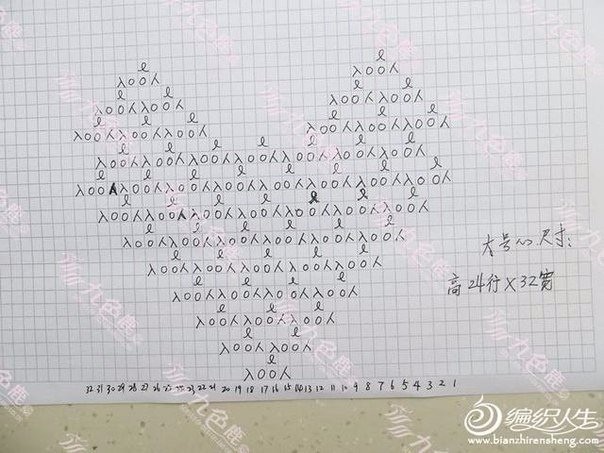 大号的尺寸：
高24行×32宽
32 31 30 29 28 27 26 25 24 23 22 21 20 19 18 17 16 15 14 13 12 11 10 9 8 7 6 5 4 3 2 1
九色鹿
编织人生
www.bianzhirensheng.com